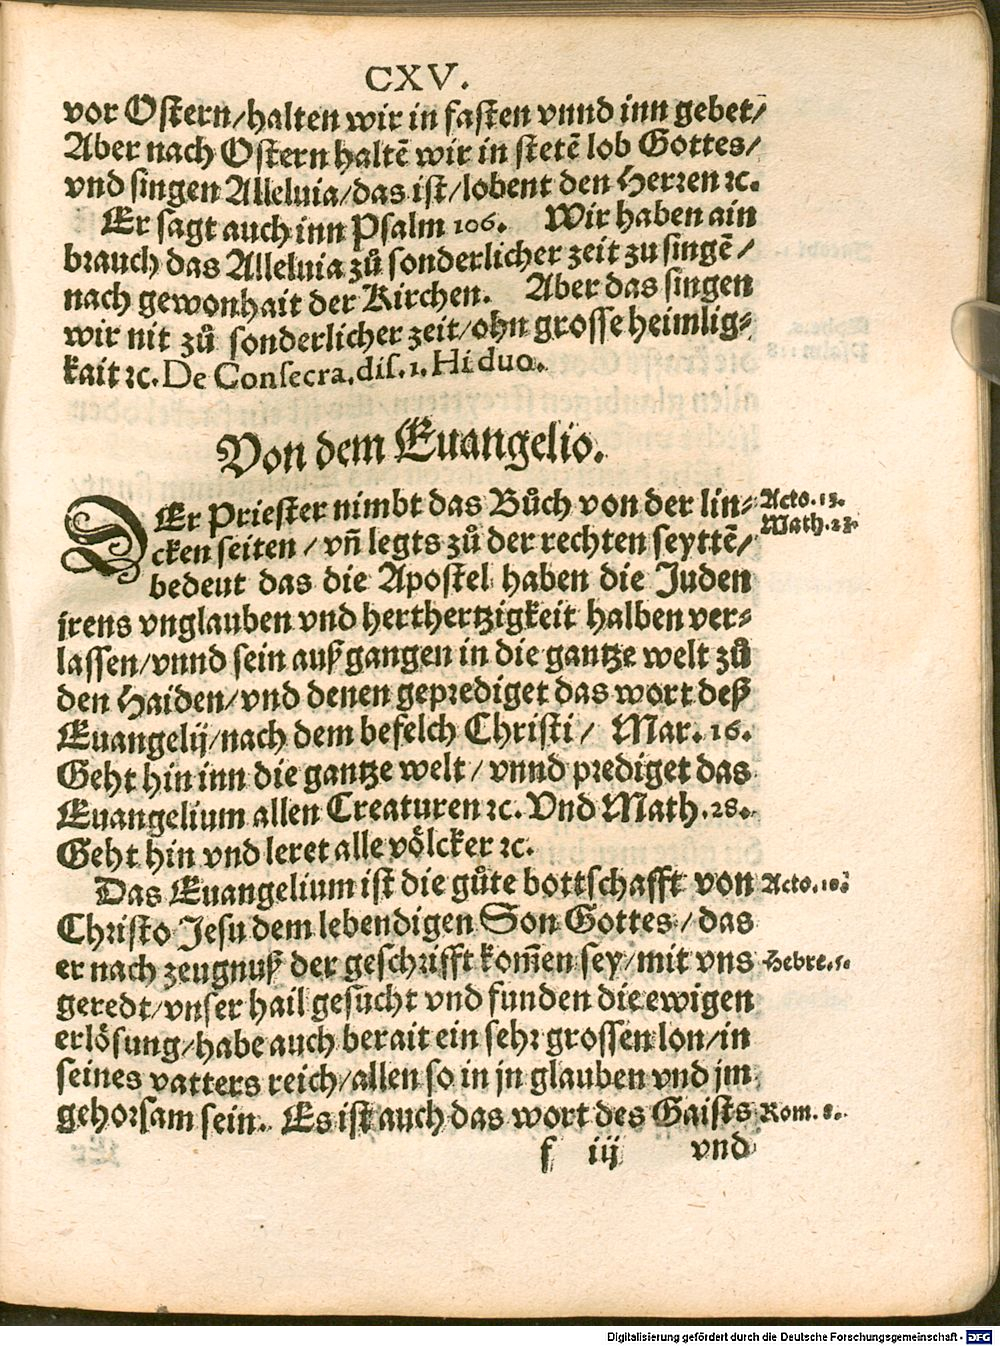 CXV.
vor Ostern/halten wir in fasten vnnd inn gebet/
Aber nach Ostern haltẽ wir in stetẽ lob Gottes/
vnd singen Alleluia/das ist/lobent den Herꝛen ꝛc.
Er sagt auch inn Psalm 106. Wir haben ain
brauch das Alleluia zů sonderlicher zeit zu singẽ/
nach gewonhait der Kirchen. Aber das singen
wir nit zů sonderlicher zeit/ohn grosse heimlig⸗
kait ꝛc. De Consecra. dis. 1. Hi duo.
Von dem Euangelio.
DEr Priester nimbt das Bůch von der lin⸗ Acto. 13.
cken seiten/vñ legts zů der rechten seyttẽ/ Math. 23.
bedeut das die Apostel haben die Juden
jrens vnglauben vnd herthertzigkeit halben ver⸗
lassen/vnnd sein außgangen in die gantze welt zů
den Haiden/vnd denen geprediget das wort deß
Euangelij/nach dem befelch Christi/ Mar. 16.
Geht hin inn die gantze welt/vnnd prediget das
Euangelium allen Creaturen ꝛc. Vnd Math. 28.
Geht hin vnd leret alle völcker ꝛc.
Das Euangelium ist die gůte bottschafft von Acto. 10.
Christo Jesu dem lebendigen Son Gottes/das
er nach zeugnuß der geschrifft kom̃en sey/mit vns Hebre. 5.
geredt/vnser hail gesucht vnd funden die ewigen
erlösung/habe auch berait ein sehr grossen lon/in
seines vatters reich/allen so in jn glauben vnd jm
gehorsam sein. Es ist auch das wort des Gaists Rom. 8.
f iij vnd
Digitalisierung gefördert durch die Deutsche Forschungsgemeinschaft - DFG